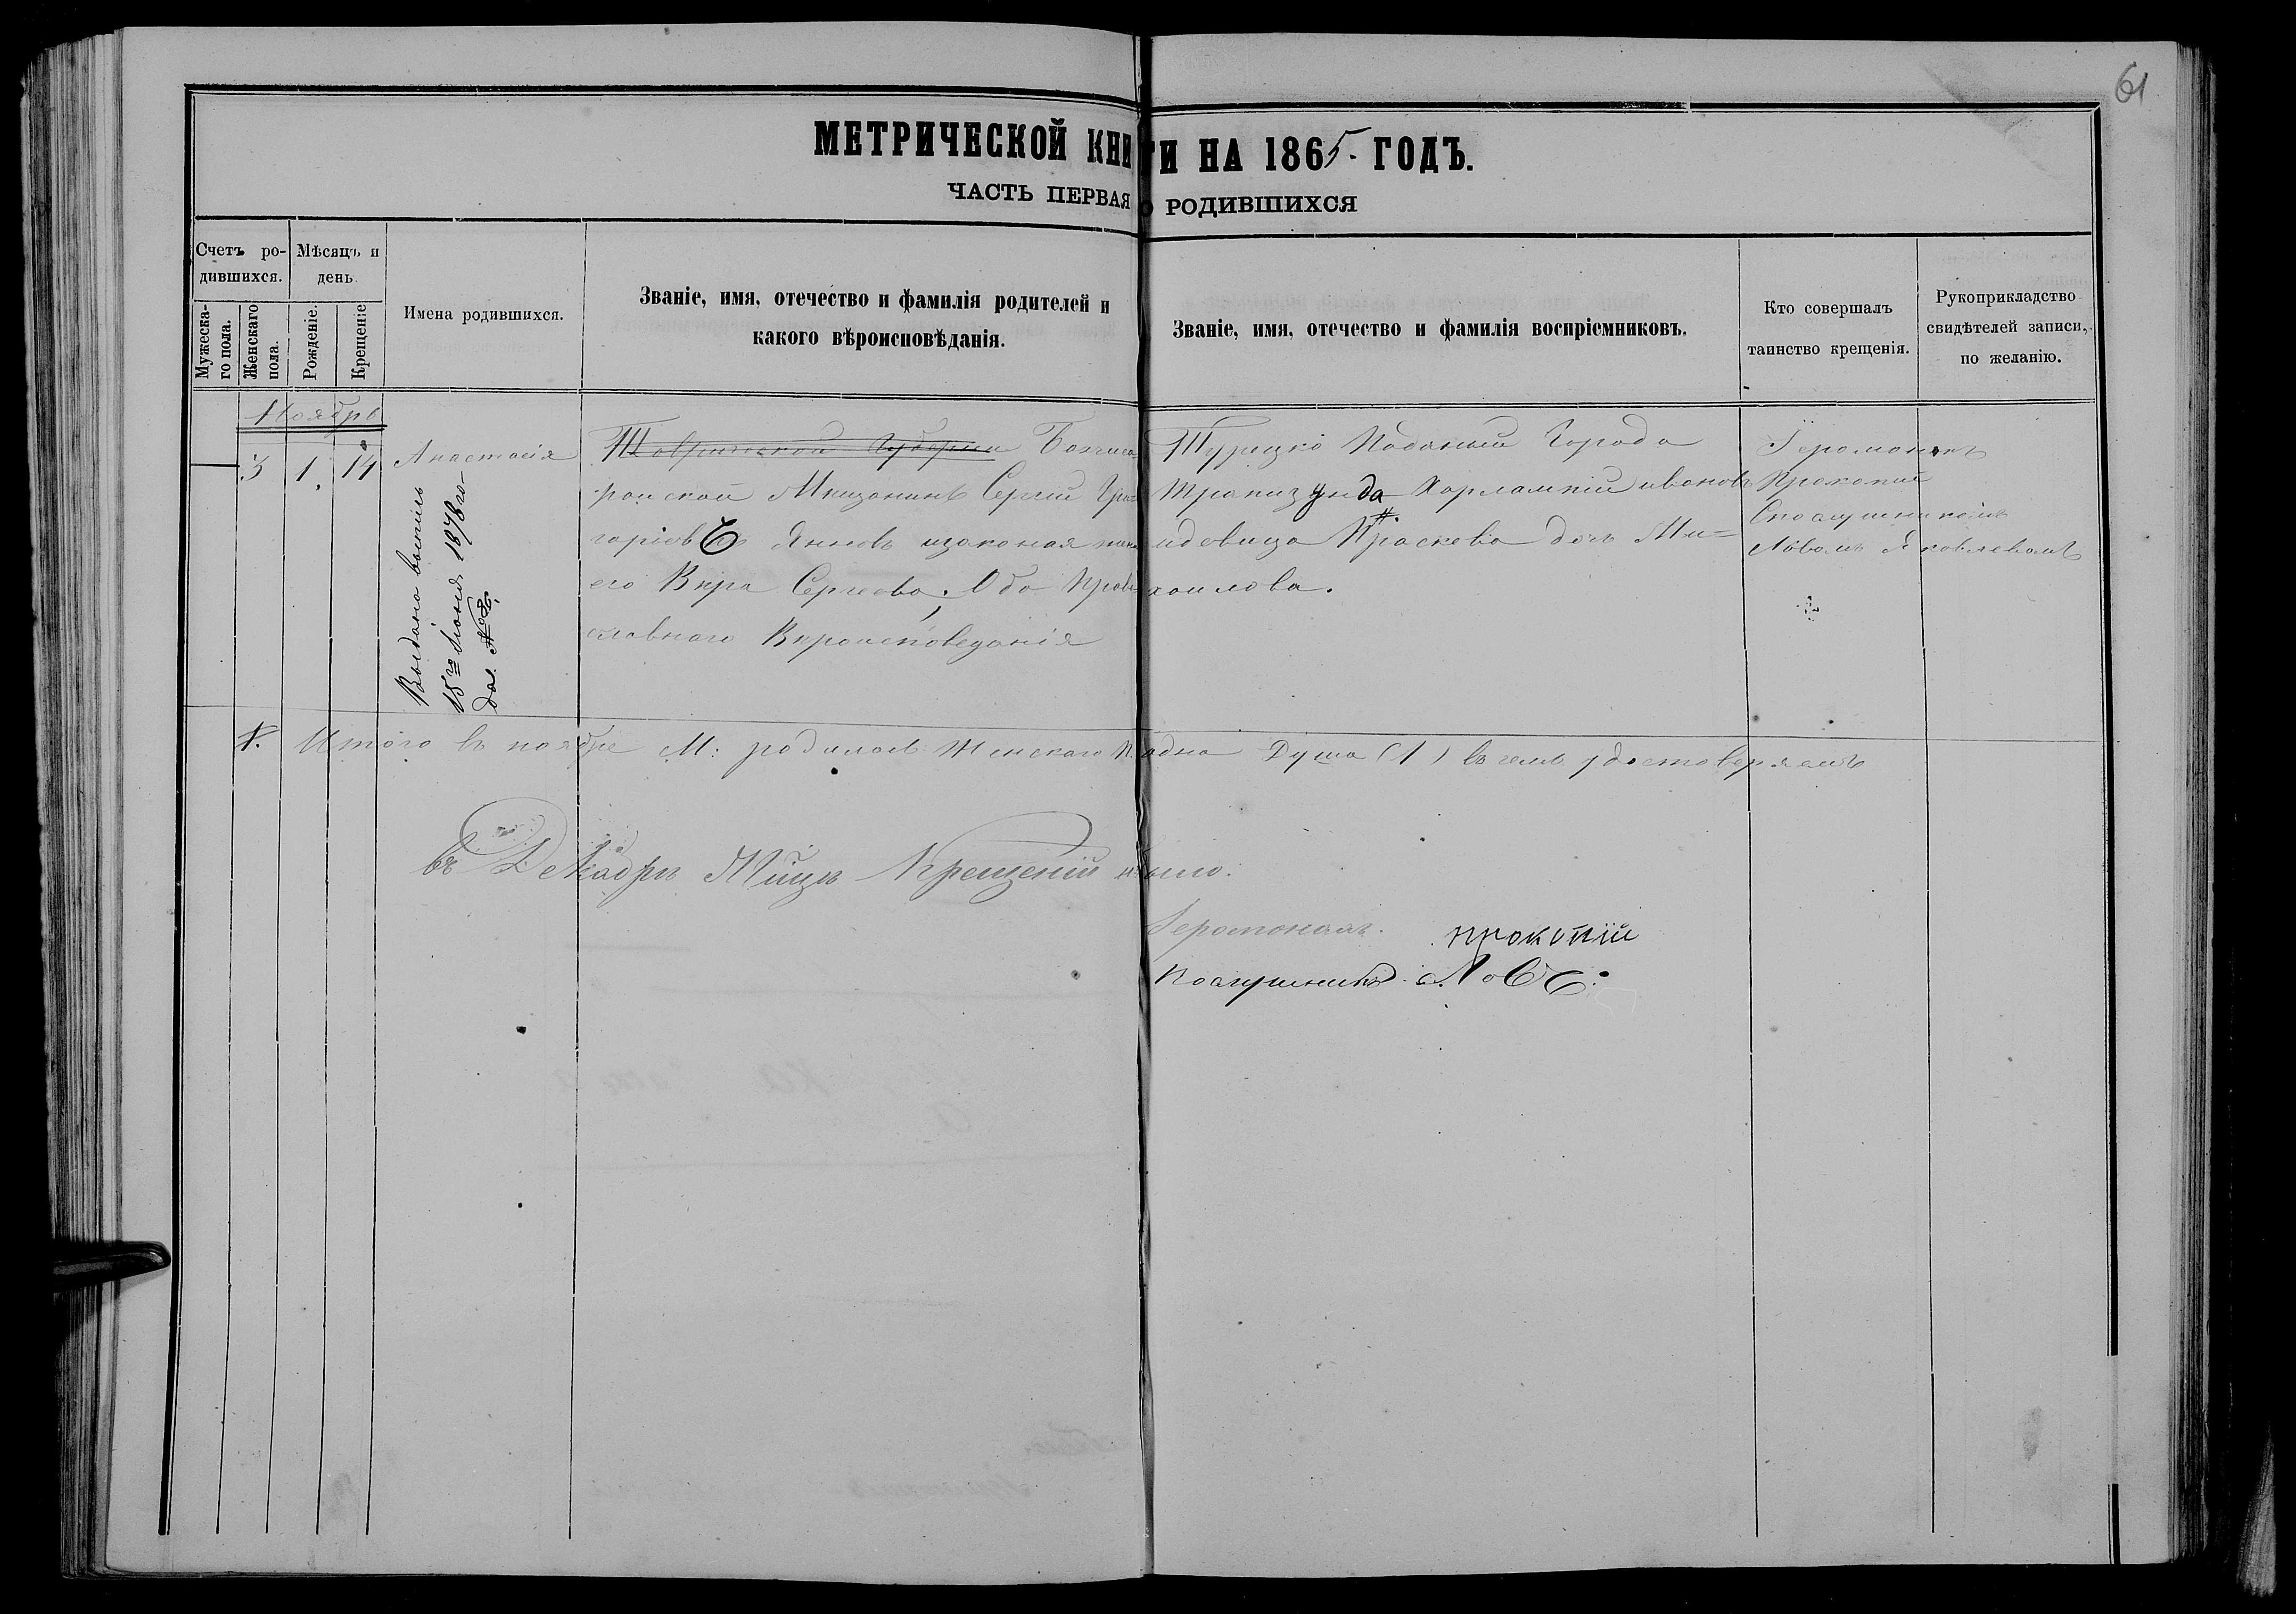 61
МЕТРИЧЕСКОЙ КНИГИ НА 1865. ГОДЪ.
ЧАСТЬ ПЕРВАЯ О РОДИВШИХСЯ
Счетъ ро-
дившихся.
Мужеска-
го пола.
Женскаго
пола.
Мѣсяцъ и
день.
Рожденіе.
Крещеніе
Имена родившихся.
Званіе, имя, отечество и фамилія родителей и
какого вѣроисповѣданія.
Званіе, имя, отечество и фамилія воспріемниковъ.
Кто совершалъ
таинство крещенія.
Рукоприкладство
свидѣтелей записи,
по желанію.
Ноябрь
3 1. 14
Анастасія
Выдано выпись
18го Іюня 1878 го-
да. №
Таврической Губернии Бахчиса
райской Мищанинъ Сергий Гри=
горіевъ Янновъ изаконая жена
его Вира Сергеева. Оба Право
славнаго Вироисповеданія
Турецко Поданый Города
Трапизунда Харлампий ивановъ
идевица Праскева дочъ Ми=
хаилова.
Іеромонахъ
Прокопий
Спослушникомъ
Львомъ Яковлевымъ
1. Итого въ ноябре М: родилось Женскаго п. адна Душа (1) в чемъ удостоверяемъ
въ Декабрѣ Мцѣ Крещений не было.
Іеромонахъ. прокопий
Послушникъ Левъ.